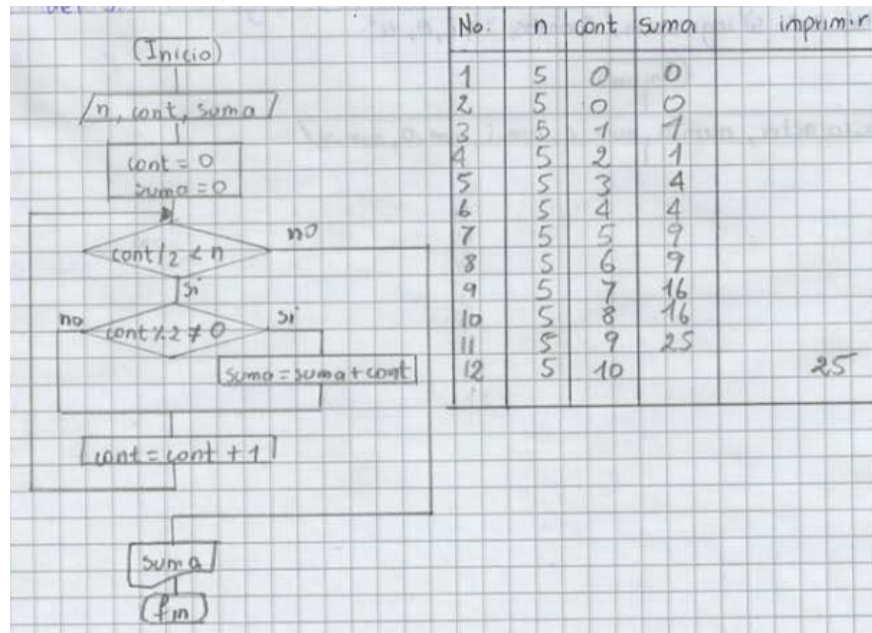 (Inicio)
n, cont, suma
cont = 0
suma = 0
cont/2 < n
no
si
cont % 2 ≠ 0
no
si
suma = suma + cont
cont = cont + 1
suma
(fin)
No. n cont suma imprimir
1 5 0 0
2 5 0 0
3 5 1 1
4 5 2 1
5 5 3 4
6 5 4 4
7 5 5 9
8 5 6 9
9 5 7 16
10 5 8 16
11 5 9 25
12 5 10 25